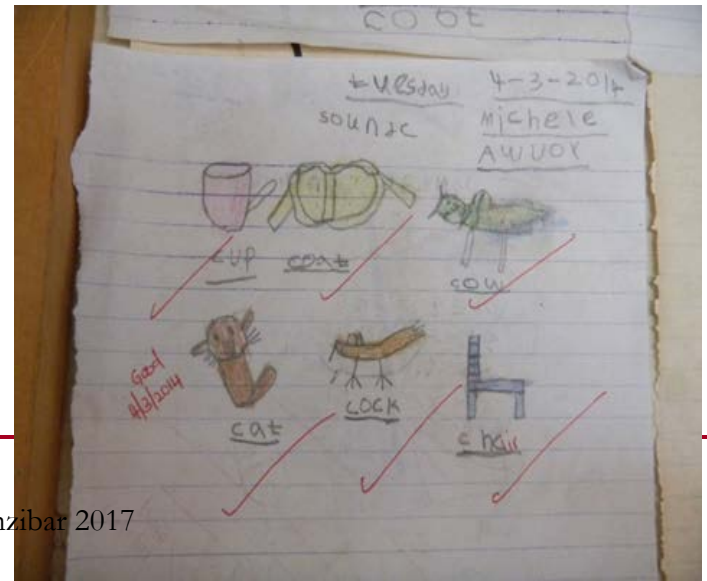 coat
tuesday 4-3-2014
soundc Michele
AWUOR
cup coat
cow
Good
4/3/2014
cat
cock
chair
nzibar 2017